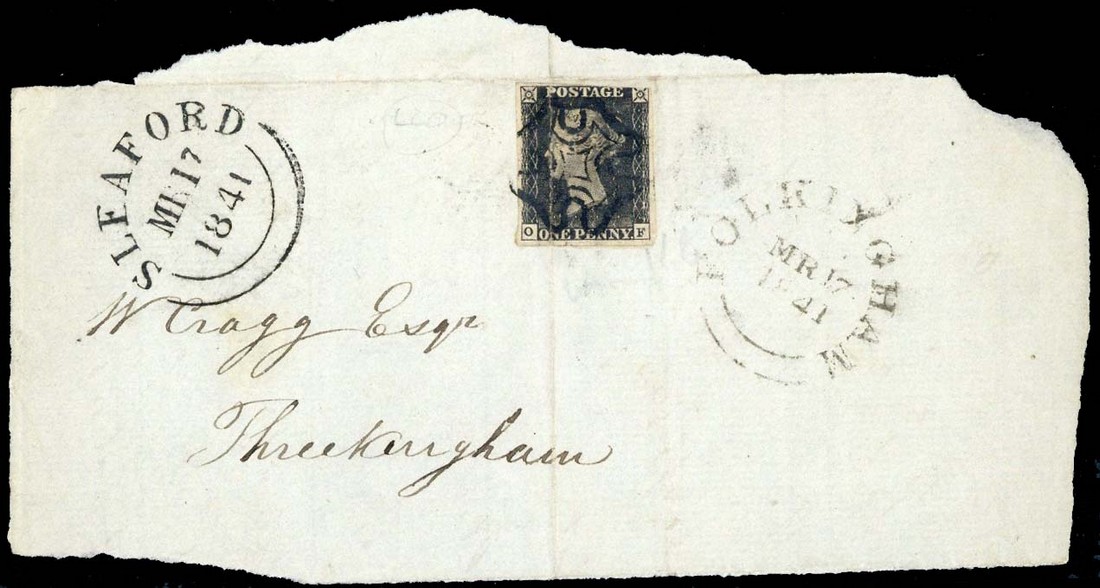 SLEAFORD
MR 17
1841
POSTAGE
O ONE PENNY. F
FOLKINGHAM
MR 17
1841
W Cragg Esqr
Threekingham